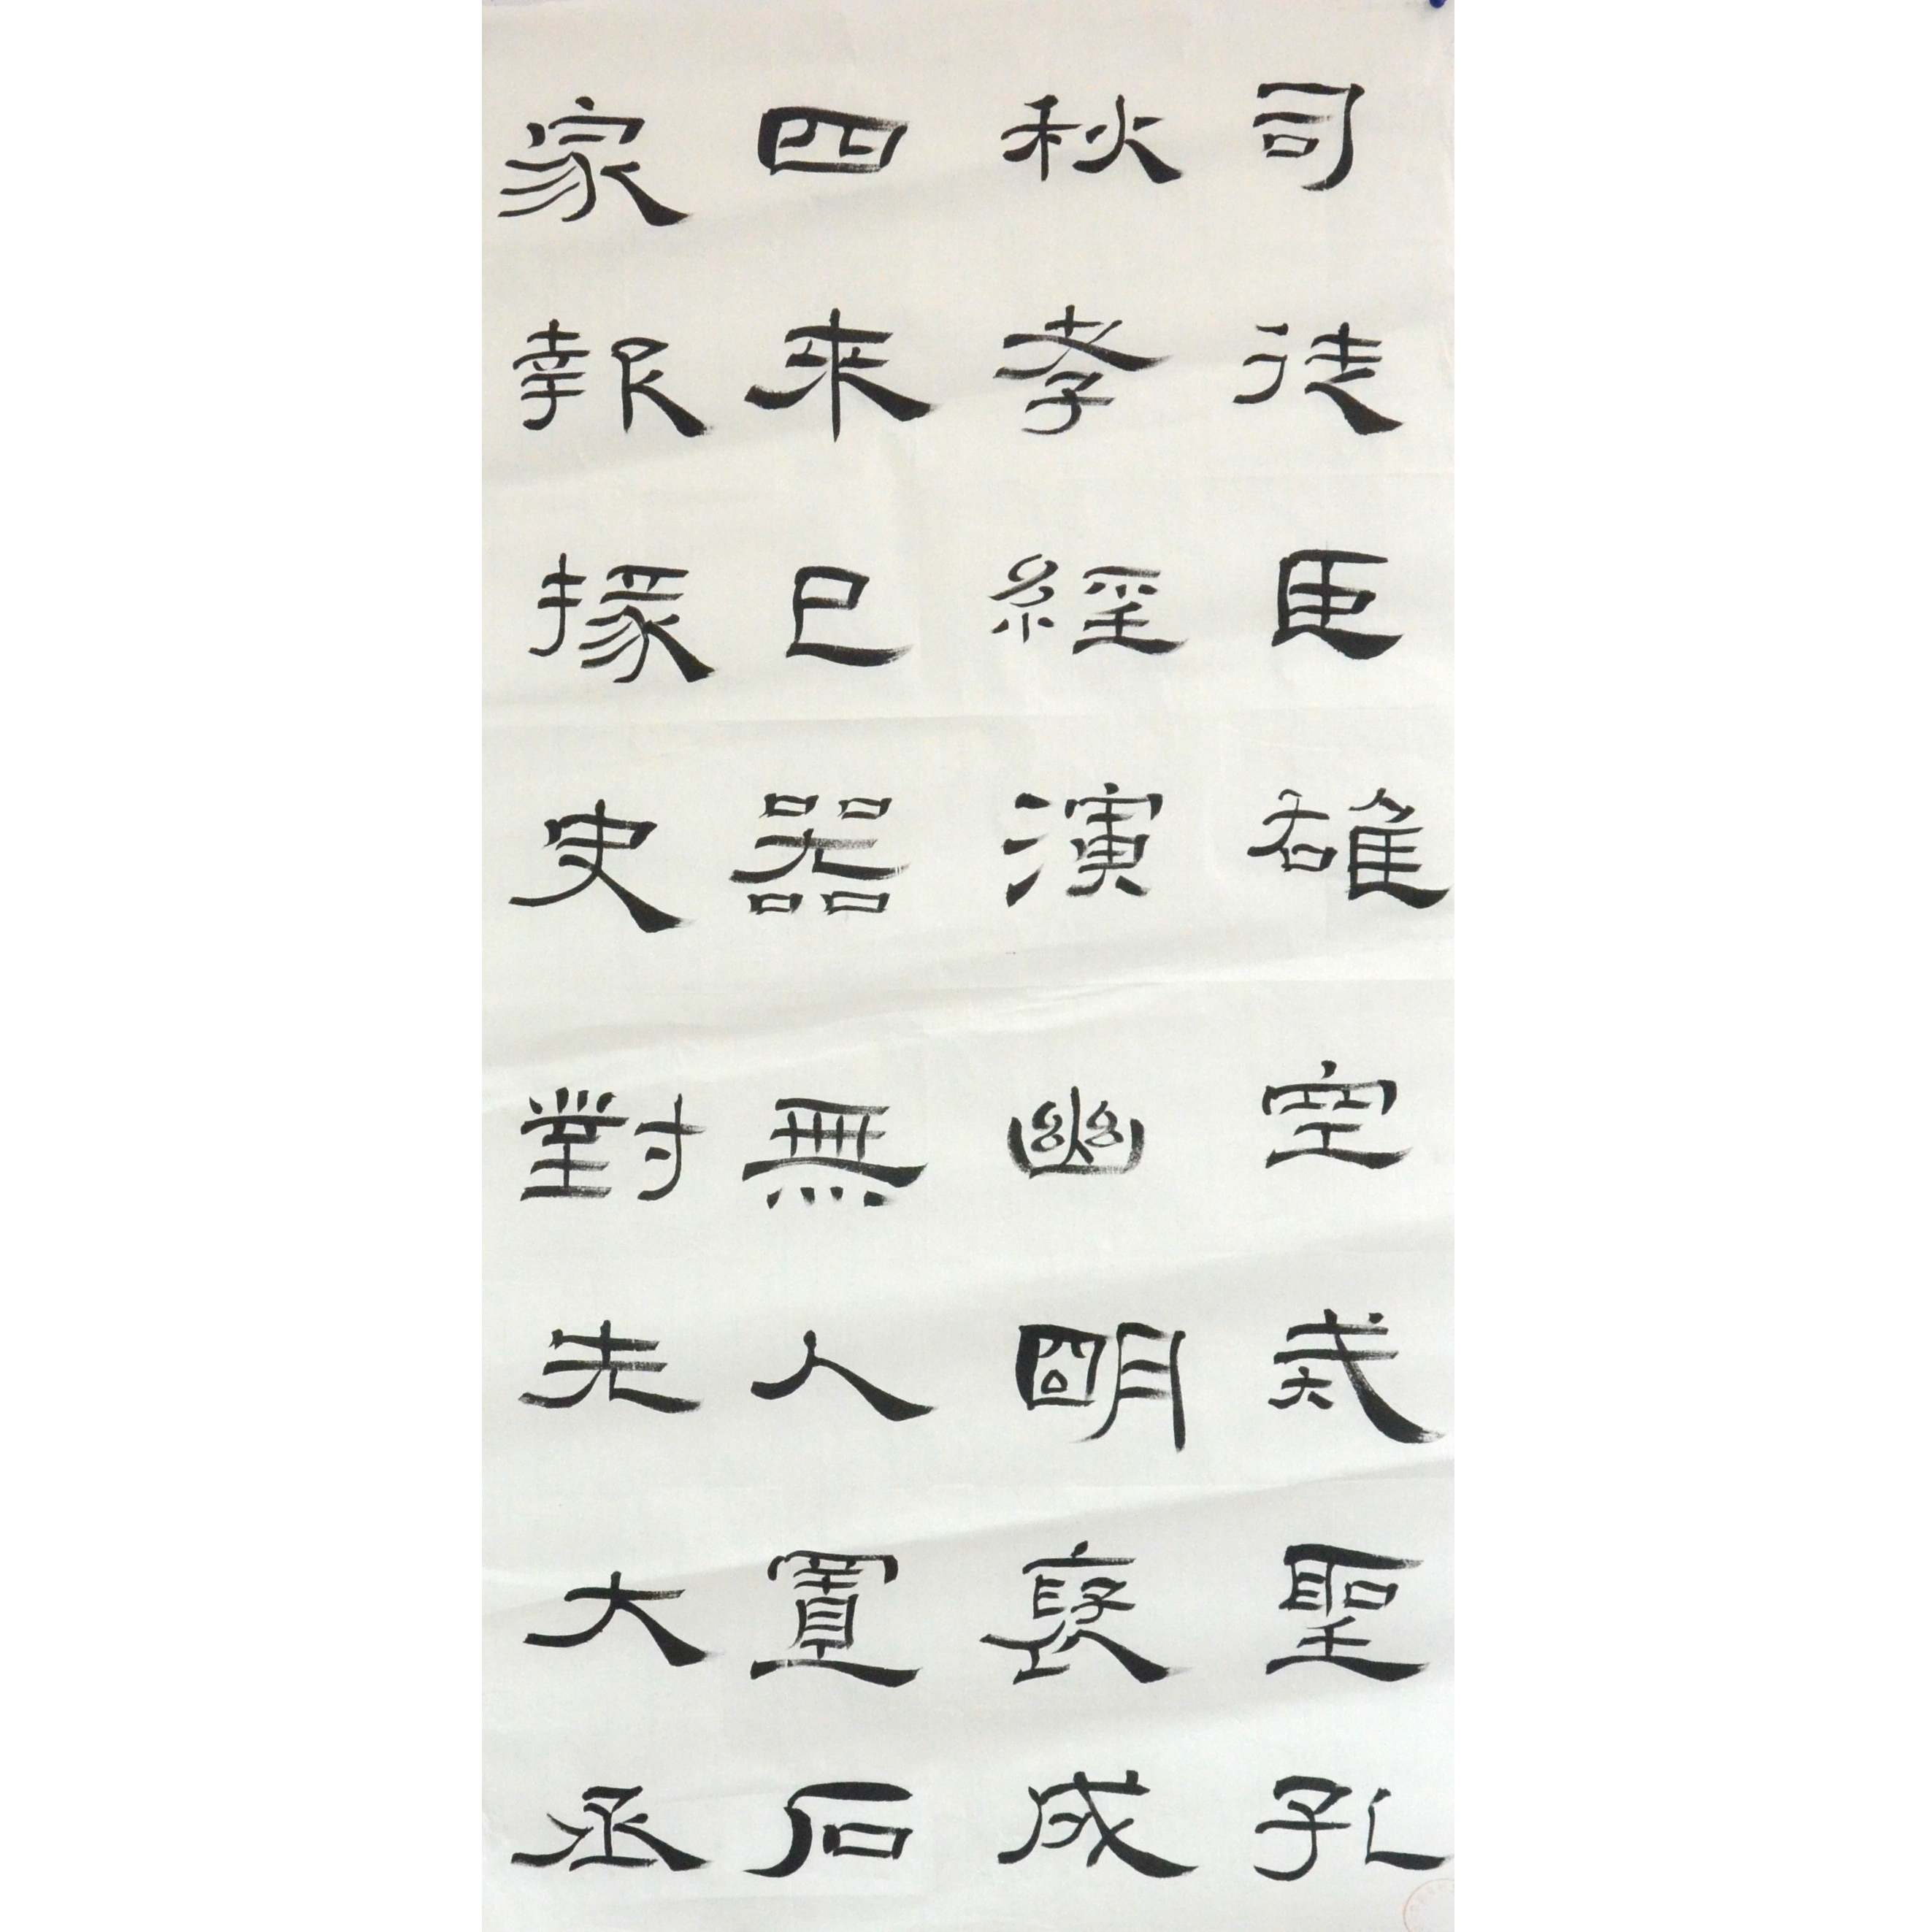 司徒臣雄空戒聖孔
秋孝經演幽明襃成
四來已器無人置石
家報掾史對先大丞